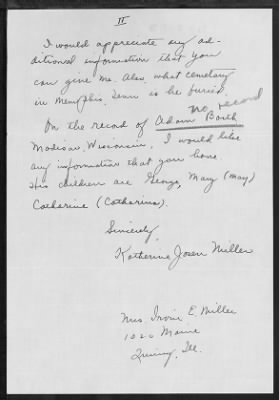 II
I would appreciate any ad-
ditional information that you
can give me. Also, what cemetary
in Memphis, Tenn is he buried.
no record
On the record of Adam Barth
Madison, Wisconsin, I would like
any information that you have.
His children are George, Mary (May)
Catherine (Catharina).
Sincerely,
Katherine Miller
Mrs E. Miller
1020 Maine
Quincy, Ill.